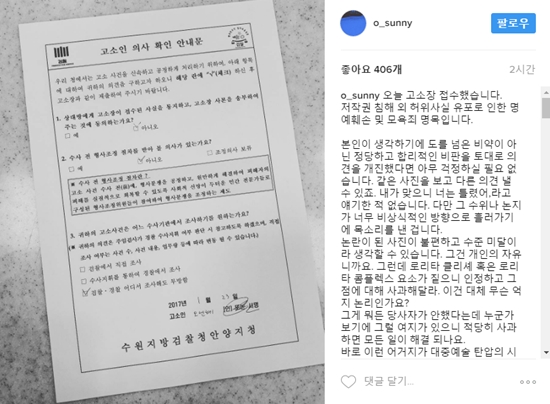 고소인 의사 확인 안내문
우리 청에서는 고소 사건을 신속하고 공정하게 처리하기 위하여, 아래 항목
에 대하여 귀하의 의견을 구하고자 하오니 해당 란에 "√"(체크) 하신 후
고소장과 같이 제출하여 주시기 바랍니다.
1. 상대방에게 고소장이 접수된 사실을 통지하고, 고소장 사본을 송부하여
주는 것에 동의하는가요?
□ 예
아니오
2. 수사 전 형사조정 절차를 받아 볼 의사가 있는가요?
□ 예
아니오
□ 조정의사 보류
※ 수사 전 형사조정 절차란 ?
3. 귀하의 고소사건은 어느 수사기관에서 조사하기를 원하는가요?
□ 검찰에서 직접 조사
□ 수사지휘를 통하여 경찰에서 조사
검찰·경찰 어디서 조사해도 무방함
2017년 1월 23일
고소인
수원지방검찰청안양지청
o_sunny
팔로우
좋아요 406개
2시간
o_sunny 오늘 고소장 접수했습니다.
저작권 침해 외 허위사실 유포로 인한 명
예훼손 및 모욕죄 명목입니다.
본인이 생각하기에 도를 넘은 비약이 아
닌 정당하고 합리적인 비판을 토대로 의
견을 개진했다면 아무 걱정하실 필요 없
습니다. 같은 사진을 보고 다른 의견 낼
수 있죠. 내가 맞으니 너는 틀렸어.라고
얘기한 적 없습니다. 다만 그 수위나 논지
가 너무 비상식적인 방향으로 흘러가기
에 목소리를 낸 겁니다.
논란이 된 사진이 불편하고 수준 미달이
라 생각할 수 있습니다. 그건 개인의 자유
니까요. 그런데 로리타 클리셰 혹은 로리
타 콤플렉스 요소가 짙으니 인정하고 그
점에 대해 사과해달라. 이건 대체 무슨 억
지 논리인가요?
그게 뭐든 당사자가 안했다는데 누군가
보기에 그럴 여지가 있으니 적당히 사과
하면 모든 일이 해결 되나요.
바로 이런 어거지가 대중예술 탄압의 시
댓글 달기...